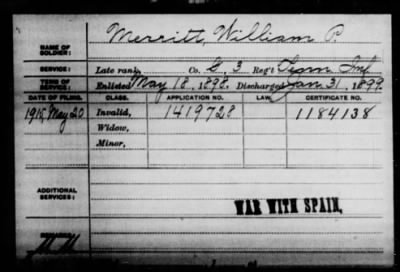 NAME OF SOLDIER: Merritt, William P.
SERVICE: Late rank, Co. G, 3 Reg't Tenn Inf
TERM OF SERVICE: Enlisted May 18, 1898. Discharged Jan 31, 1899.
DATE OF FILING. CLASS. APPLICATION NO. LAW. CERTIFICATE NO.
1915, May 20 Invalid, 1419728 1184138
Widow,
Minor,
ADDITIONAL SERVICES:
WAR WITH SPAIN,